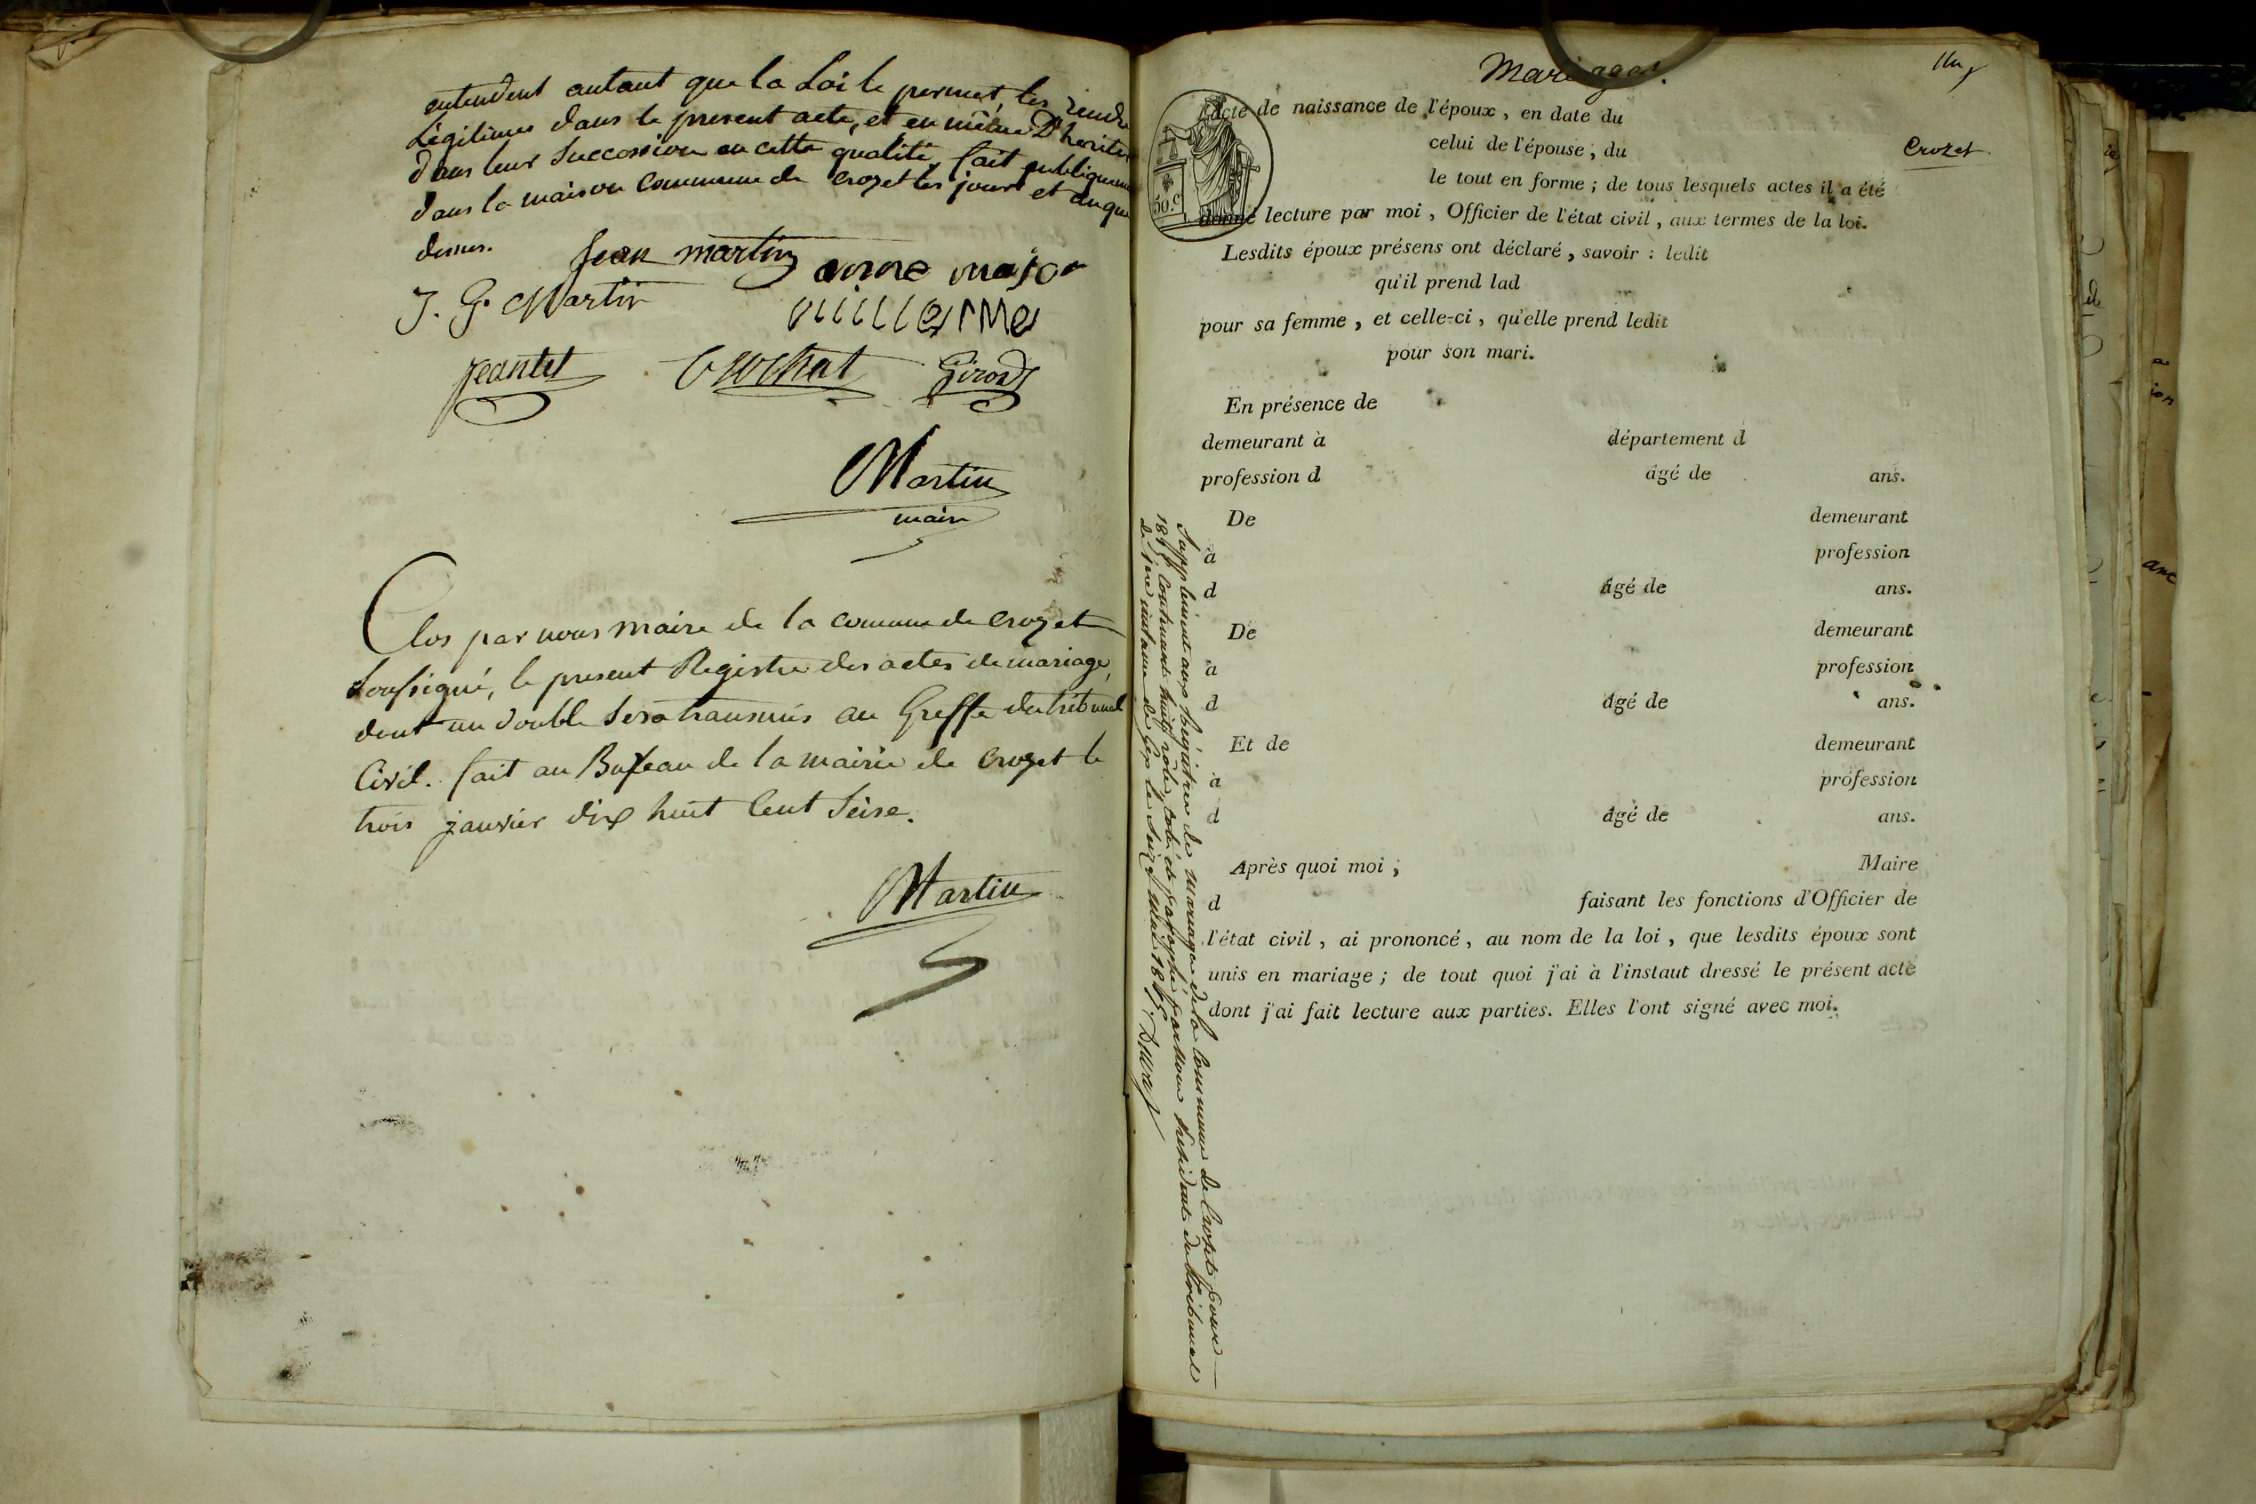 entendent autant que la Loi le permet, les rendre
Légitimes dans le present acte, et en même D'heriter
dans leur Succession en cette qualité, fait publiquement
dans la maison Commune de Crozet les jour et an que
dessus.
Jean martin anne major
J. G. Martin vuillerme
Jeantet Crochat Girod
Martin
maire
Clos par nous maire de la commune de Crozet
Soussigné, le present Registre des actes de mariage,
dont un double sera transmis au Greffe du tribunal
Civil. fait au Bureau de la mairie de Crozet le
trois janvier dix huit Cent Seise.
Martin
Mariages.
Un
Crozet
50 C
L'acte de naissance de l'époux, en date du
celui de l'épouse, du
le tout en forme ; de tous lesquels actes il a été
donné lecture par moi, Officier de l'état civil, aux termes de la loi.
Lesdits époux présens ont déclaré, savoir : ledit
qu'il prend lad
pour sa femme, et celle-ci, qu'elle prend ledit
pour son mari.
En présence de
demeurant à département d
profession d âgé de ans.
De demeurant
à profession
d âgé de ans.
De demeurant
à profession
d âgé de ans.
Et de demeurant
à profession
d âgé de ans.
Après quoi moi, Maire
d faisant les fonctions d'Officier de
l'état civil, ai prononcé, au nom de la loi, que lesdits époux sont
unis en mariage ; de tout quoi j'ai à l'instaut dressé le présent acte
dont j'ai fait lecture aux parties. Elles l'ont signé avec moi.
Supplément aux Régistres de mariage de la Commune de Crozet pour
1815 contenant huit rôles, coté et paraphé par nous président du tribunal
de 1ere instance de Gex le Seize mai 1815. Duval